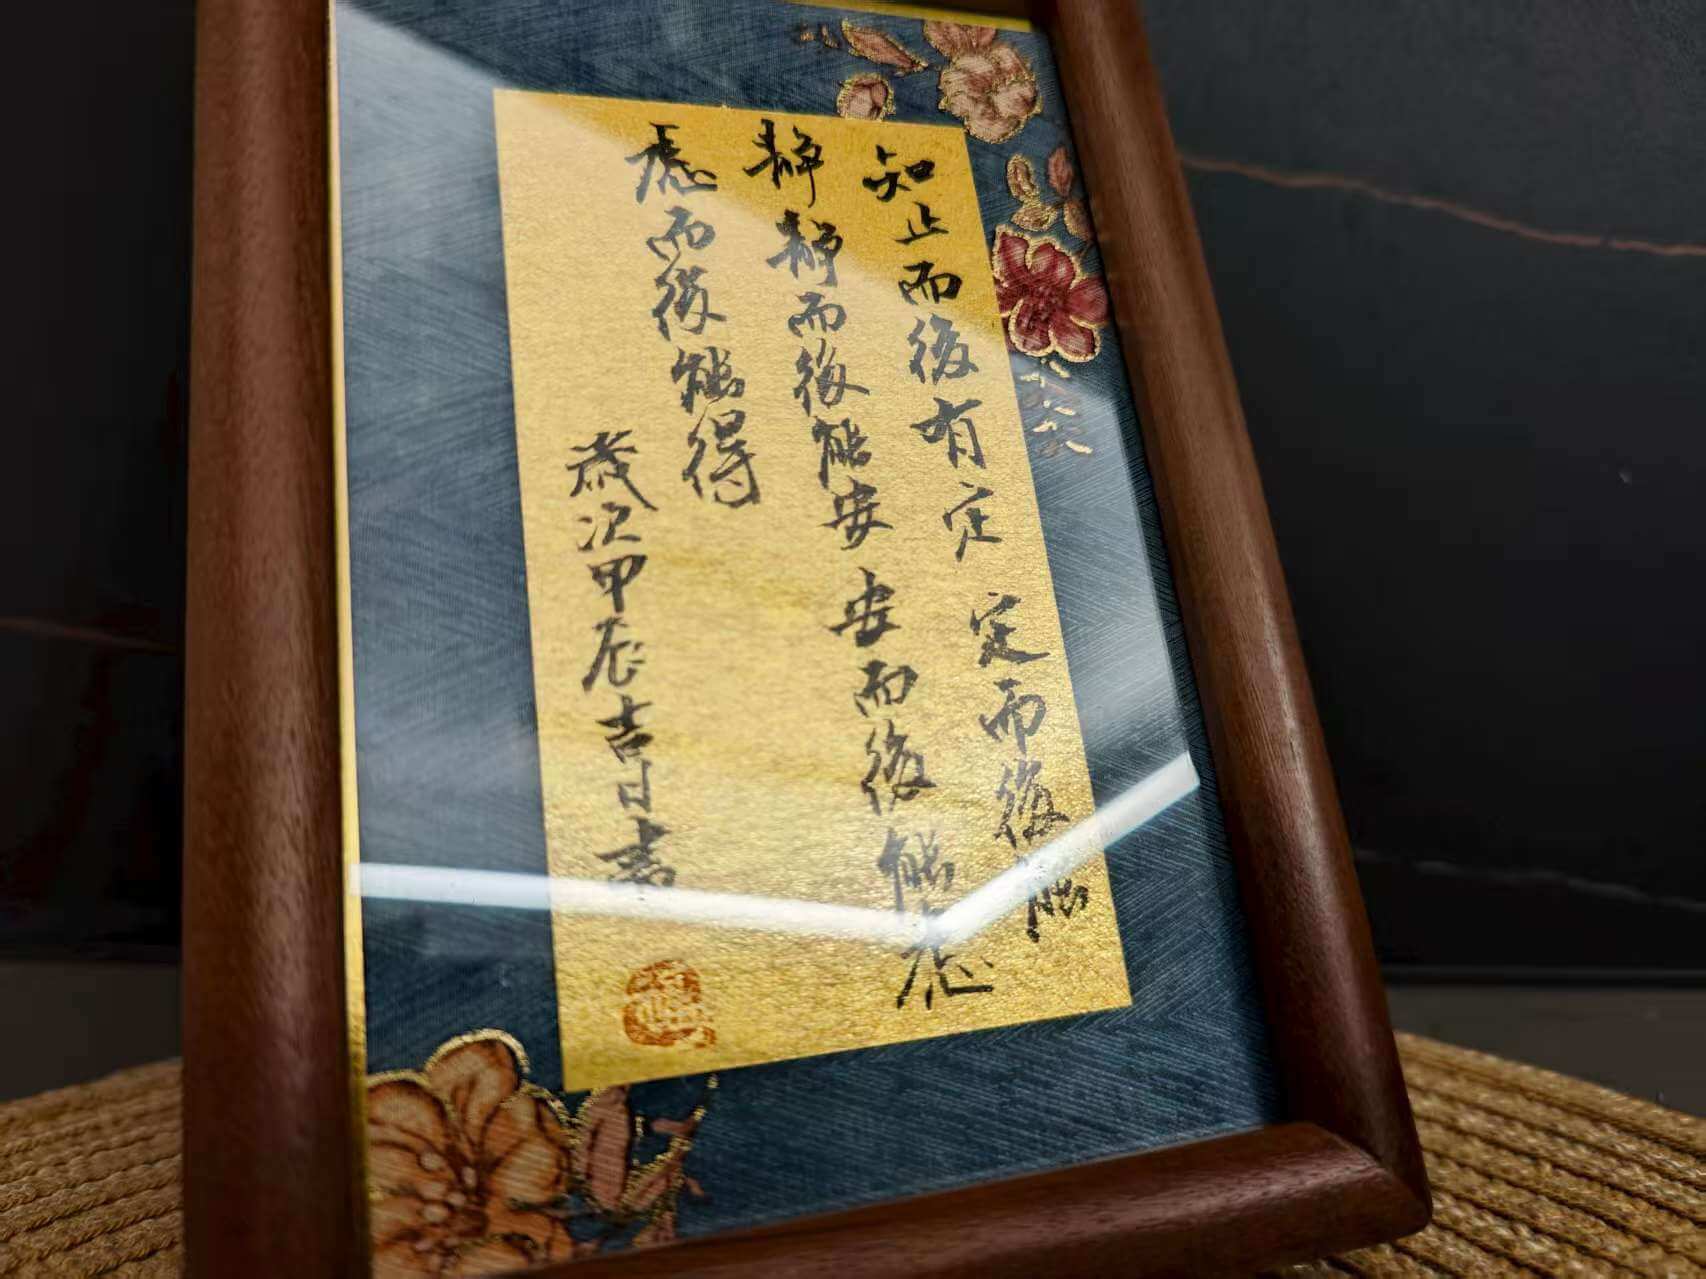 知止而後有定 定而後能
靜 靜而後能安 安而後能慮
慮而後能得
歲次甲辰吉日書